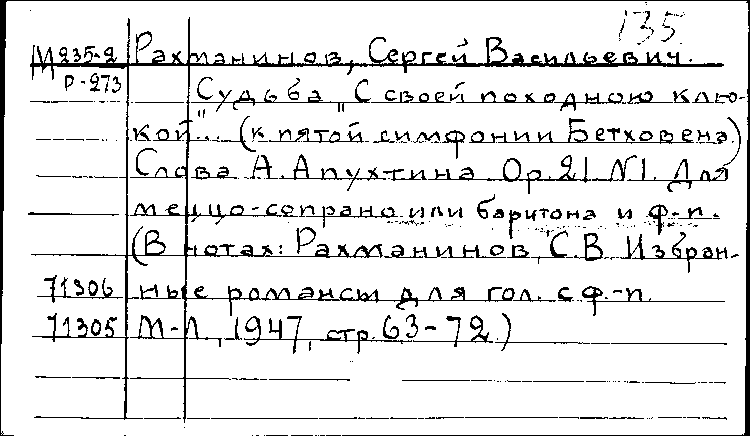 135
М 235-2 Рахманинов, Сергей Васильевич.
Р-273 Судьба "С своей походною клю-
кой"... (к пятой симфонии Бетховена)
Слова А. Апухтина. Ор. 21 N1. Для
меццо-сопрано или баритона и ф-п.
(В нотах: Рахманинов, С.В. Избран-
71306 ные романсы для гол. с ф.-п.
71305 М-Л., 1947, стр. 63-72.)